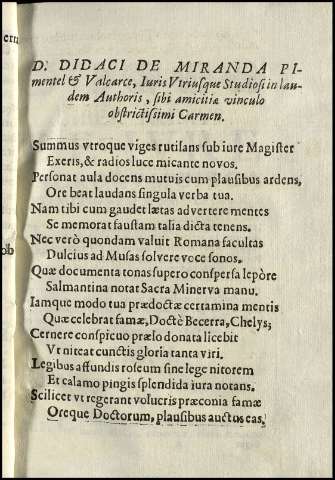 D. DIDACI DE MIRANDA PI-
mentel & Valcarce, Iuris Vtriusque Studiosi in lau-
dem Authoris, sibi amicitiæ vinculo
obstrictissimi Carmen.
Summus vtroque viges rutilans sub iure Magister
Exeris, & radios luce micante novos.
Personat aula docens mutuis cum plausibus ardens,
Ore beat laudans singula verba tua.
Nam tibi cum gaudet lætas advertere mentes
Se memorat faustam talia dicta tenens.
Nec verò quondam valuit Romana facultas
Dulcius ad Musas solvere voce sonos.
Quæ documenta tonas supero conspersa lepòre
Salmantina notat Sacra Minerva manu.
Iamque modo tua prædoctæ certamina mentis
Quæ celebrat famæ, Doctè Becerra, Chelys;
Cernere conspicuo prælo donata licebit
Vt niteat cunctis gloria tanta viri.
Legibus affundis roseum sine lege nitorem
Et calamo pingis splendida iura notans.
Scilicet vt regerant volucris præconia famæ
Oreque Doctorum, plausibus auctus eas.